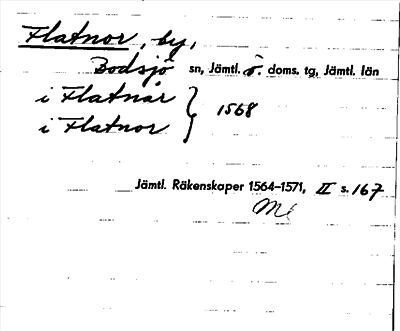 Flatnor, by,
Bodsjö sn, Jämtl. ö. doms. tg, Jämtl. län
i Flatnår
i Flatnor } 1568
Jämtl. Räkenskaper 1564-1571, II s. 167